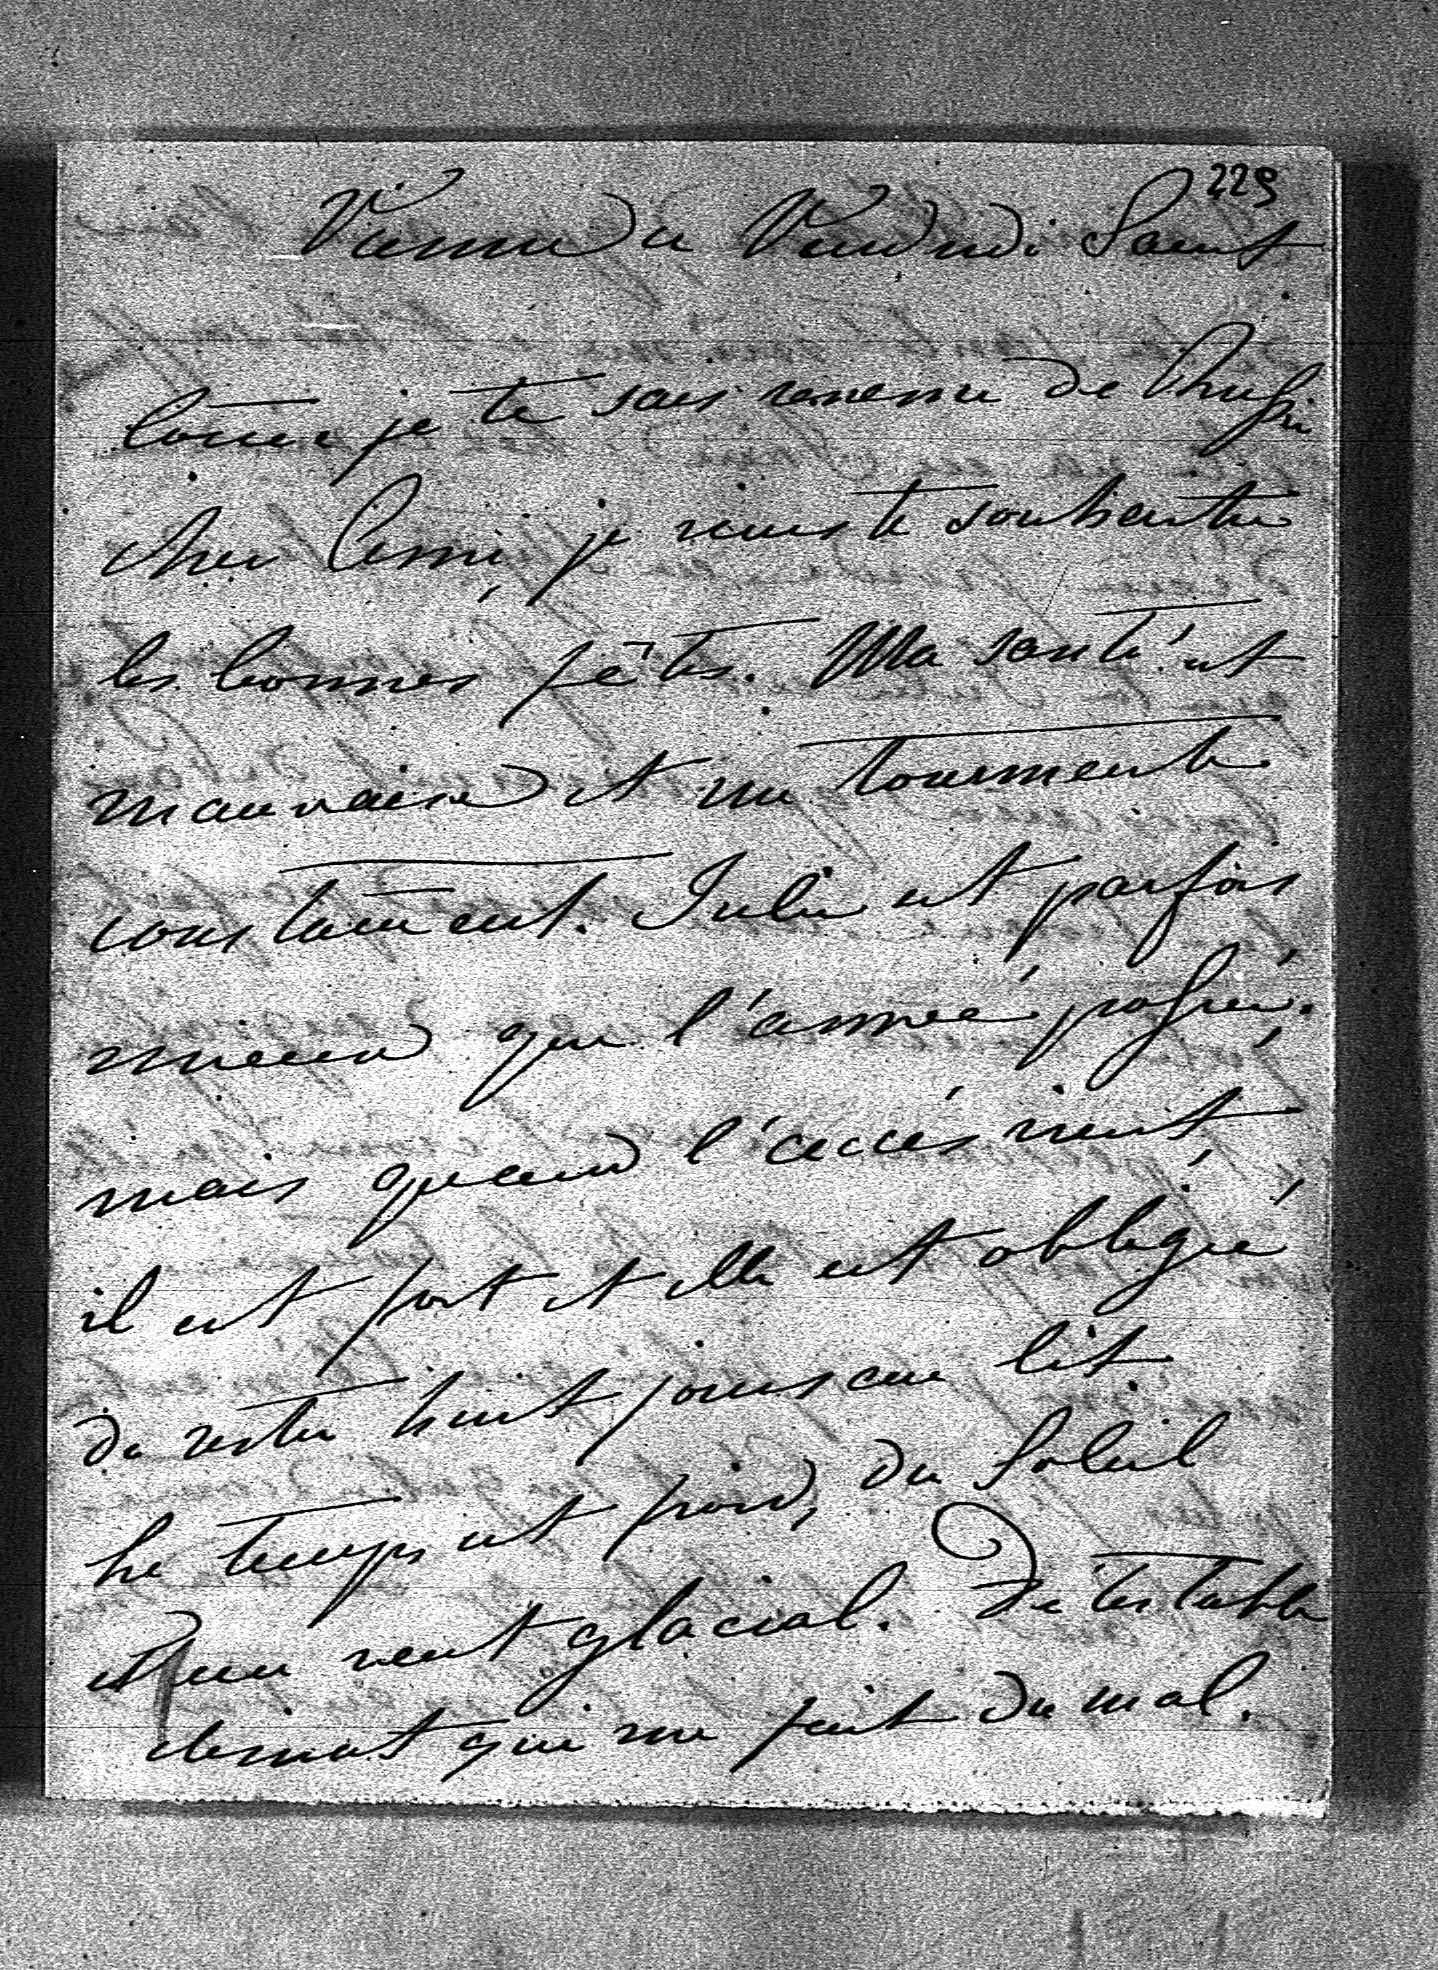 229
Vienne ce Vendredi Saint
Comme je te sais revenu de Russie
cher Ami, je viens te souhaiter
les bonnes fêtes. Ma santé est
mauvaise et me tourmente
constamment. Julie est parfois
mieux que l'année passée,
mais quand l'accès vient,
il est fort et elle est obligée
de rester huit jours au lit
Le temps est froid, du Soleil
et un vent glacial. Détestable
climat qui me fait du mal.